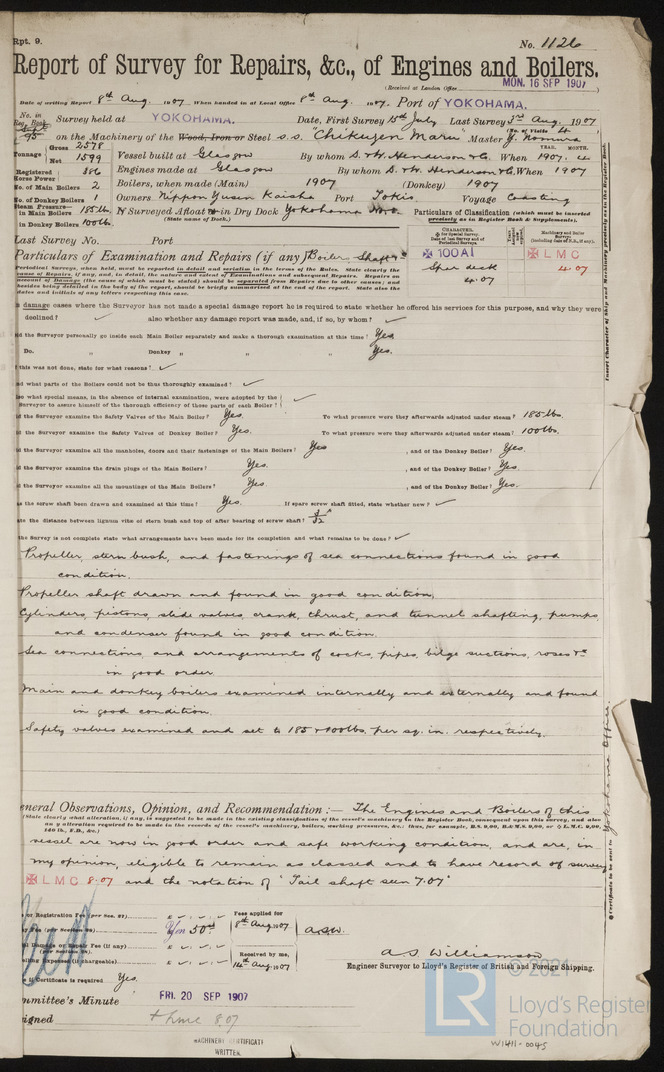 Rpt. 9.
No. 1126
Report of Survey for Repairs, &c., of Engines and Boilers.
(Received at London Office MON. 16 SEP 1907)
Date of writing Report 8th Aug. 1907 When handed in at Local Office 8th Aug. 1907. Port of YOKOHAMA.
No. in Reg. Book Survey held at YOKOHAMA. Date, First Survey 15th July Last Survey 3rd Aug. 1907
(No. of Visits 4)
95 on the Machinery of the Wood, Iron or Steel s.s. "Chikuzen Maru" Master Y. Nomura
Tonnage Gross 2578 Net 1599 Vessel built at Glasgow By whom D. & W. Henderson & Co. When 1907. 4
YEAR. MONTH.
Registered Horse Power 386 Engines made at Glasgow By whom D. & W. Henderson & Co. When 1907
No. of Main Boilers 2 Boilers, when made (Main) 1907 (Donkey) 1907
No. of Donkey Boilers 1 Owners Nippon Yusen Kaisha Port Tokio Voyage Coasting
Steam Pressure— in Main Boilers 185 lbs. Surveyed Afloat or in Dry Dock Yokohama No. 2.
in Donkey Boilers 100 lbs. (State name of Dock.)
Particulars of Classification (which must be inserted precisely as in Register Book & Supplements).
Last Survey No. Port
CHARACTER.
✠ 100A1
Spar deck
4.07
✠ LMC
4.07
Particulars of Examination and Repairs (if any) Boilers, Shaft &c
Periodical Surveys, when held, must be reported in detail and seriatim in the terms of the Rules. State clearly the
cause of Repairs, if any, and, in detail, the nature and extent of Examinations and subsequent Repairs. Repairs on
account of Damage (the cause of which must be stated) should be separated from Repairs due to other causes; and
besides being detailed in the body of the report, should be briefly summarised at the end of the report. State also the
dates and initials of any letters respecting this case.
damage cases where the Surveyor has not made a special damage report he is required to state whether he offered his services for this purpose, and why they were
declined? ✓ also whether any damage report was made, and, if so, by whom? ✓
did the Surveyor personally go inside each Main Boiler separately and make a thorough examination at this time? Yes.
Do. " Donkey " " " Yes.
if this was not done, state for what reasons? ✓
and what parts of the Boilers could not be thoroughly examined? ✓
also what special means, in the absence of internal examination, were adopted by the
Surveyor to assure himself of the thorough efficiency of those parts of each Boiler? ✓
did the Surveyor examine the Safety Valves of the Main Boiler? Yes. To what pressure were they afterwards adjusted under steam? 185 lbs.
did the Surveyor examine the Safety Valves of Donkey Boiler? Yes. To what pressure were they afterwards adjusted under steam? 100 lbs.
did the Surveyor examine all the manholes, doors and their fastenings of the Main Boilers? Yes , and of the Donkey Boiler? Yes.
did the Surveyor examine the drain plugs of the Main Boilers? Yes. , and of the Donkey Boiler? Yes.
did the Surveyor examine all the mountings of the Main Boilers? Yes. , and of the Donkey Boiler? Yes.
has the screw shaft been drawn and examined at this time? Yes. If spare screw shaft fitted, state whether new? ✓
state the distance between lignum vitæ of stern bush and top of after bearing of screw shaft? 3/32"
the Survey is not complete state what arrangements have been made for its completion and what remains to be done? ✓
Propeller, stern bush, and fastenings of sea connections found in good
condition.
Propeller shaft drawn and found in good condition.
Cylinders, pistons, slide valves, crank, thrust, and tunnel shafting, pumps,
and condenser found in good condition.
Sea connections, and arrangements of cocks, pipes, bilge suctions, roses &c
in good order
Main and donkey boilers examined internally and externally and found
in good condition.
Safety valves examined and set to 185 & 100 lbs. per sq. in. respectively.
General Observations, Opinion, and Recommendation:— The Engines and Boilers of this
(State clearly what alteration, if any, is suggested to be made in the existing classification of the vessel's machinery in the Register Book, consequent upon this survey, and also
any alteration required to be made in the records of the vessel's machinery, boilers, working pressures, &c.: thus, for example, B.S. 9,00, B.&M.S. 9,00, or ✠ L.M.C. 9,00,
140 lb., F.D., &c.)
vessel are now in good order and safe working condition, and are, in
my opinion, eligible to remain as classed and to have record of survey
✠ LMC 8.07 and the notation of "Tail shaft seen 7.07"
or Registration Fee (per Sec. 27)
Fee (per Section 28) Yen 50.00
Damage or Repair Fee (if any)
(per Section 28.)
Travelling Expenses (if chargeable)
Fees applied for
8th Aug. 1907
Received by me,
14th Aug. 1907
A.S.W.
A. S. Williamson
Engineer Surveyor to Lloyd's Register of British and Foreign Shipping.
if Certificate is required Yes.
Committee's Minute FRI. 20 SEP 1907
Assigned + LMC 8.07
MACHINERY CERTIFICATE
WRITTEN.
Certificate to be sent to Yokohama Office.
© 2021
LR
Lloyd's Register
Foundation
W1411-0045